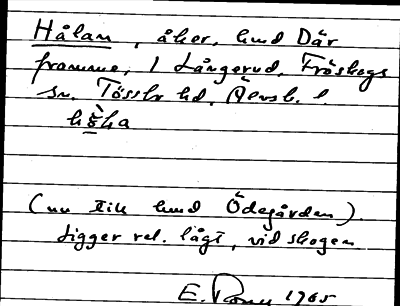 Hålan, åker, hmd Där
framme, 1 Långerud, Fröskogs
sn. Tössbo hd. Älvsb. l.
(nu till hmd Ödegården).
Ligger rel. lågt, vid skogen
E. 1965